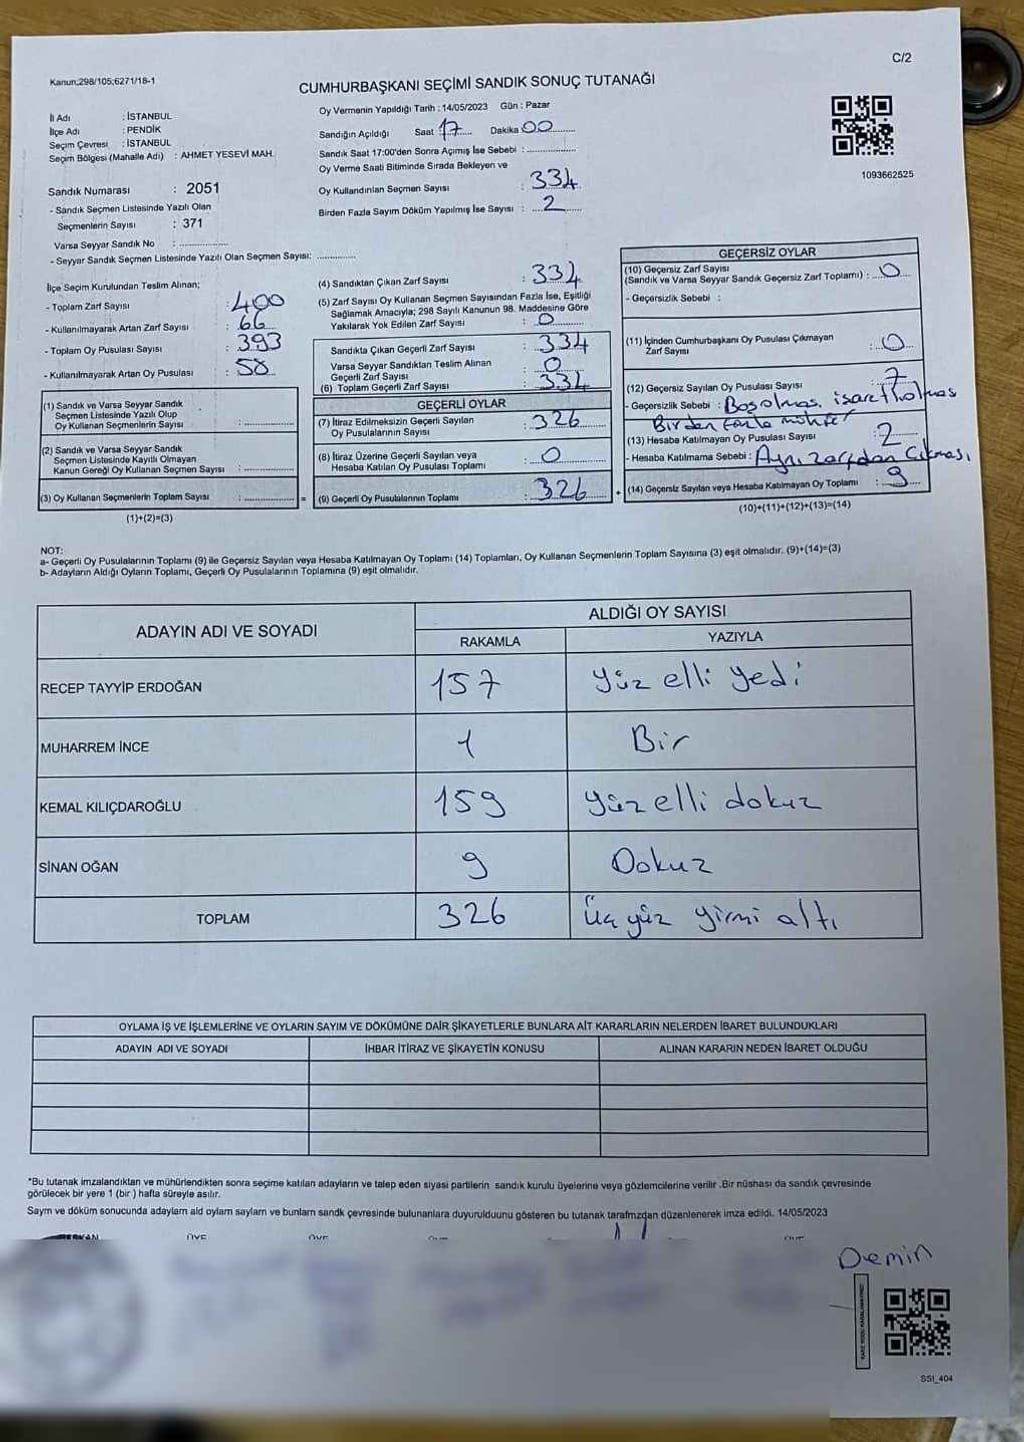 Kanun:298/105;6271/18-1
C/2
CUMHURBAŞKANI SEÇİMİ SANDIK SONUÇ TUTANAĞI
İl Adı : İSTANBUL
İlçe Adı : PENDİK
Seçim Çevresi : İSTANBUL
Seçim Bölgesi (Mahalle Adı) : AHMET YESEVİ MAH.
Sandık Numarası : 2051
- Sandık Seçmen Listesinde Yazılı Olan
Seçmenlerin Sayısı : 371
Varsa Seyyar Sandık No :
- Seyyar Sandık Seçmen Listesinde Yazılı Olan Seçmen Sayısı:
Oy Vermenin Yapıldığı Tarih : 14/05/2023 Gün : Pazar
Sandığın Açıldığı Saat 17 Dakika 00
Sandık Saat 17:00'den Sonra Açımış İse Sebebi :
Oy Verme Saati Bitiminde Sırada Bekleyen ve
Oy Kullandırılan Seçmen Sayısı : 334
Birden Fazla Sayım Döküm Yapılmış İse Sayısı : 2
1093662525
İlçe Seçim Kurulundan Teslim Alınan;
- Toplam Zarf Sayısı : 400
- Kullanılmayarak Artan Zarf Sayısı : 66
- Toplam Oy Pusulası Sayısı : 393
- Kullanılmayarak Artan Oy Pusulası : 58
(1) Sandık ve Varsa Seyyar Sandık
Seçmen Listesinde Yazılı Olup
Oy Kullanan Seçmenlerin Sayısı :
(2) Sandık ve Varsa Seyyar Sandık
Seçmen Listesinde Kayıtlı Olmayan
Kanun Gereği Oy Kullanan Seçmen Sayısı :
(3) Oy Kullanan Seçmenlerin Toplam Sayısı : =
(1)+(2)=(3)
(4) Sandıktan Çıkan Zarf Sayısı : 334
(5) Zarf Sayısı Oy Kullanan Seçmen Sayısından Fazla İse, Eşitliği
Sağlamak Amacıyla; 298 Sayılı Kanunun 98. Maddesine Göre
Yakılarak Yok Edilen Zarf Sayısı : 0
Sandıkta Çıkan Geçerli Zarf Sayısı : 334
Varsa Seyyar Sandıktan Teslim Alınan
Geçerli Zarf Sayısı : 0
(6) Toplam Geçerli Zarf Sayısı : 334
GEÇERLİ OYLAR
(7) İtiraz Edilmeksizin Geçerli Sayılan
Oy Pusulalarının Sayısı : 326
(8) İtiraz Üzerine Geçerli Sayılan veya
Hesaba Katılan Oy Pusulası Toplamı : 0
(9) Geçerli Oy Pusulalarının Toplamı : 326 +
GEÇERSİZ OYLAR
(10) Geçersiz Zarf Sayısı
(Sandık ve Varsa Seyyar Sandık Geçersiz Zarf Toplamı) : 0
- Geçersizlik Sebebi :
(11) İçinden Cumhurbaşkanı Oy Pusulası Çıkmayan
Zarf Sayısı : 0
(12) Geçersiz Sayılan Oy Pusulası Sayısı : 7
- Geçersizlik Sebebi : Boş olması, işaretli olması
Birden fazla mühür
(13) Hesaba Katılmayan Oy Pusulası Sayısı : 2
- Hesaba Katılmama Sebebi : Aynı zarfdan Çıkması
(14) Geçersiz Sayılan veya Hesaba Katılmayan Oy Toplamı : 9
(10)+(11)+(12)+(13)=(14)
NOT:
a- Geçerli Oy Pusulalarının Toplamı (9) ile Geçersiz Sayılan veya Hesaba Katılmayan Oy Toplamı (14) Toplamları, Oy Kullanan Seçmenlerin Toplam Sayısına (3) eşit olmalıdır. (9)+(14)=(3)
b- Adayların Aldığı Oyların Toplamı, Geçerli Oy Pusulalarının Toplamına (9) eşit olmalıdır.
ADAYIN ADI VE SOYADI
ALDIĞI OY SAYISI
RAKAMLA YAZIYLA
RECEP TAYYİP ERDOĞAN 157 yüz elli yedi
MUHARREM İNCE 1 Bir
KEMAL KILIÇDAROĞLU 159 yüz elli dokuz
SİNAN OĞAN 9 Dokuz
TOPLAM 326 üç yüz yirmi altı
OYLAMA İŞ VE İŞLEMLERİNE VE OYLARIN SAYIM VE DÖKÜMÜNE DAİR ŞİKAYETLERLE BUNLARA AİT KARARLARIN NELERDEN İBARET BULUNDUKLARI
ADAYIN ADI VE SOYADI İHBAR İTİRAZ VE ŞİKAYETİN KONUSU ALINAN KARARIN NEDEN İBARET OLDUĞU
*Bu tutanak imzalandıktan ve mühürlendikten sonra seçime katılan adayların ve talep eden siyasi partilerin sandık kurulu üyelerine veya gözlemcilerine verilir .Bir nüshası da sandık çevresinde
görülecek bir yere 1 (bir ) hafta süreyle asılır.
Sayım ve döküm sonucunda adaylam ald oylam saylam ve bunlam sandk çevresinde bulunanlara duyurulduunu gösteren bu tutanak tarafmzdan düzenlenerek imza edildi. 14/05/2023
Demin
SSI_404